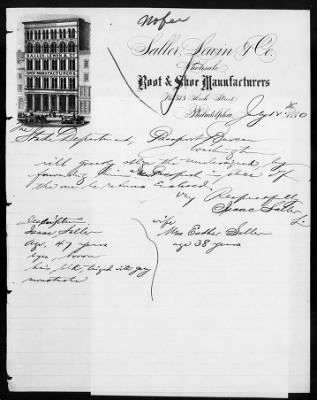 No fee
SALLER, LEWIN & CO.
SHOE MANUFACTURERS.
Saller, Lewin & Co.
Wholesale
Boot & Shoe Manufacturers
No. 313 Arch Street,
Philadelphia, July 12th 1880
The State Department, Passport Bureau
Washington
will greatly oblige the undersigned by
furnishing him a Passport in place of
the one he returns enclosed.
Very Respectfully
Isaac Saller
Description
Isaac Saller
Age, 47 years
Eyes, brown
hair, blk, tinged with gray
moustache
wife
Mrs Esther Saller
age 38 years